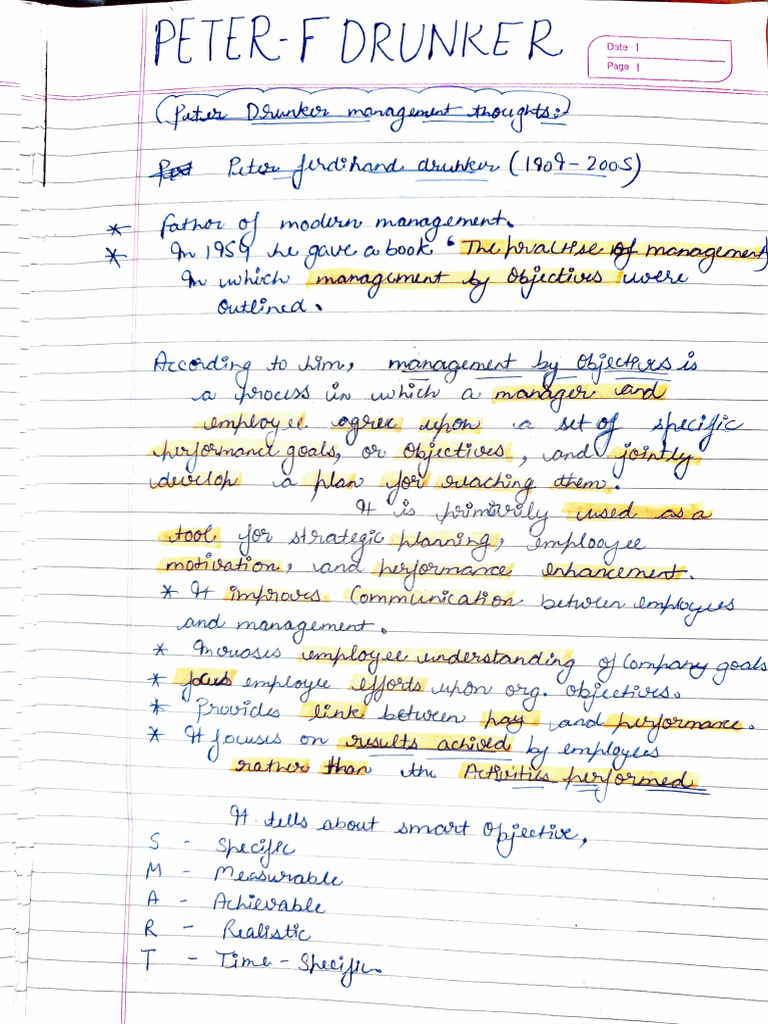 PETER-F DRUNKER
Date
Page
(Peter Drunker management thoughts:)
Peter ferdinand drunker (1909-2005)
* father of modern management.
* In 1954 he gave a book "The practise of management)
In which management by Objectives were
outlined.
According to him, management by Objectives is
a process in which a manager and
employee agree upon a set of specific
performance goals, or objectives, and jointly
develop a plan for reaching them.
It is primirily used as a
tool for strategic planning, employee
motivation, and performance enhancement.
* It improves Communication between employees
and management.
* Increases employee understanding of Company goals
* focus employee efforts upon org. objectives.
* Provides link between pay and performance.
* It focuses on results achived by employees
rather than the Activities performed
It tells about smart Objective,
S - Specific
M - Measurable
A - Achievable
R - Realistic
T - Time-Specific.